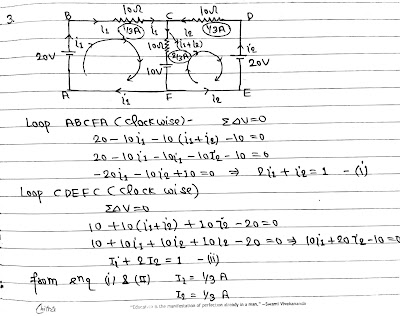 3.
B 10Ω C 10Ω D
i1 1/3A i1 i2 1/3A
10Ω (i1+i2)
i1 2/3A i2
20V 10V 20V
A i1 F i2 E
Loop ABCFA (Clockwise)- ΣΔV=0
20 - 10i1 - 10(i1+i2) - 10 = 0
20 - 10i1 - 10i1 - 10I2 - 10 = 0
-20i1 - 10i2 + 10 = 0 ⇒ 2i1 + i2 = 1 - (i)
Loop CDEFC (Clock wise)
ΣΔV=0
10 + 10(i1+i2) + 10I2 - 20 = 0
10 + 10i1 + 10i2 + 10I2 - 20 = 0 ⇒ 10i1 + 20I2 - 10 = 0
I1 + 2I2 = 1 - (ii)
from enq (i) & (II) I1 = 1/3 A
I2 = 1/3 A
"Education is the manifestation of perfection already in a man." -Swami Vivekananda